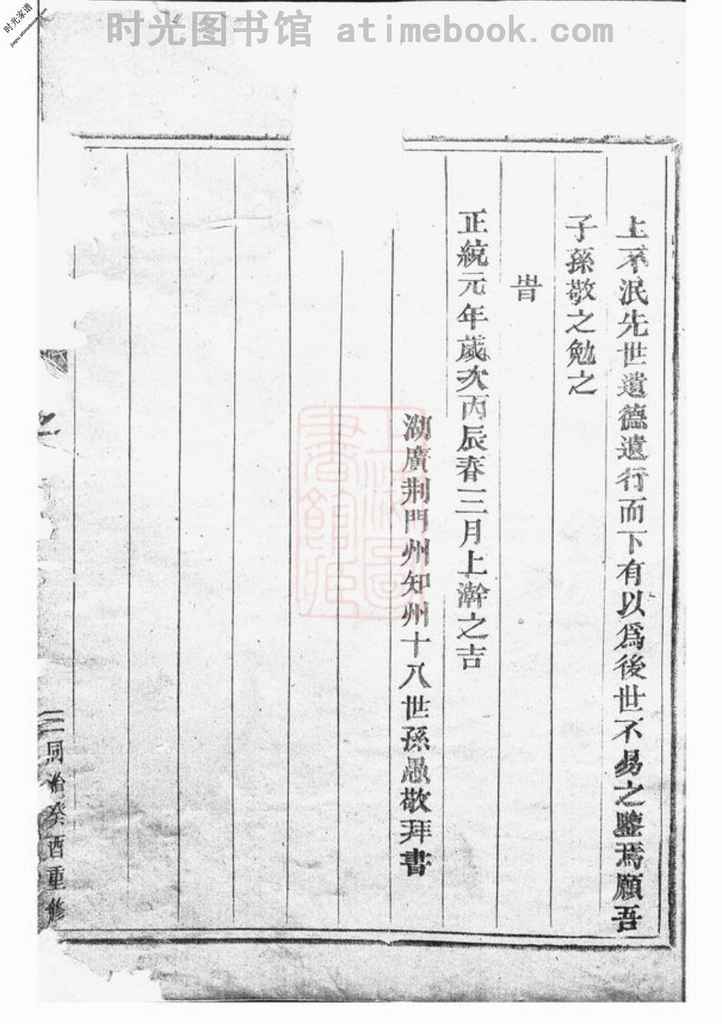 时光图书馆 atimebook.com
时光家谱
上不泯先世遺德遺行而下有以爲後世不易之鑒焉願吾
子孫敬之勉之
旹
正統元年歲次丙辰春三月上澣之吉
湖廣荆門州知州十八世孫愚敬拜書
三
同治癸酉重修